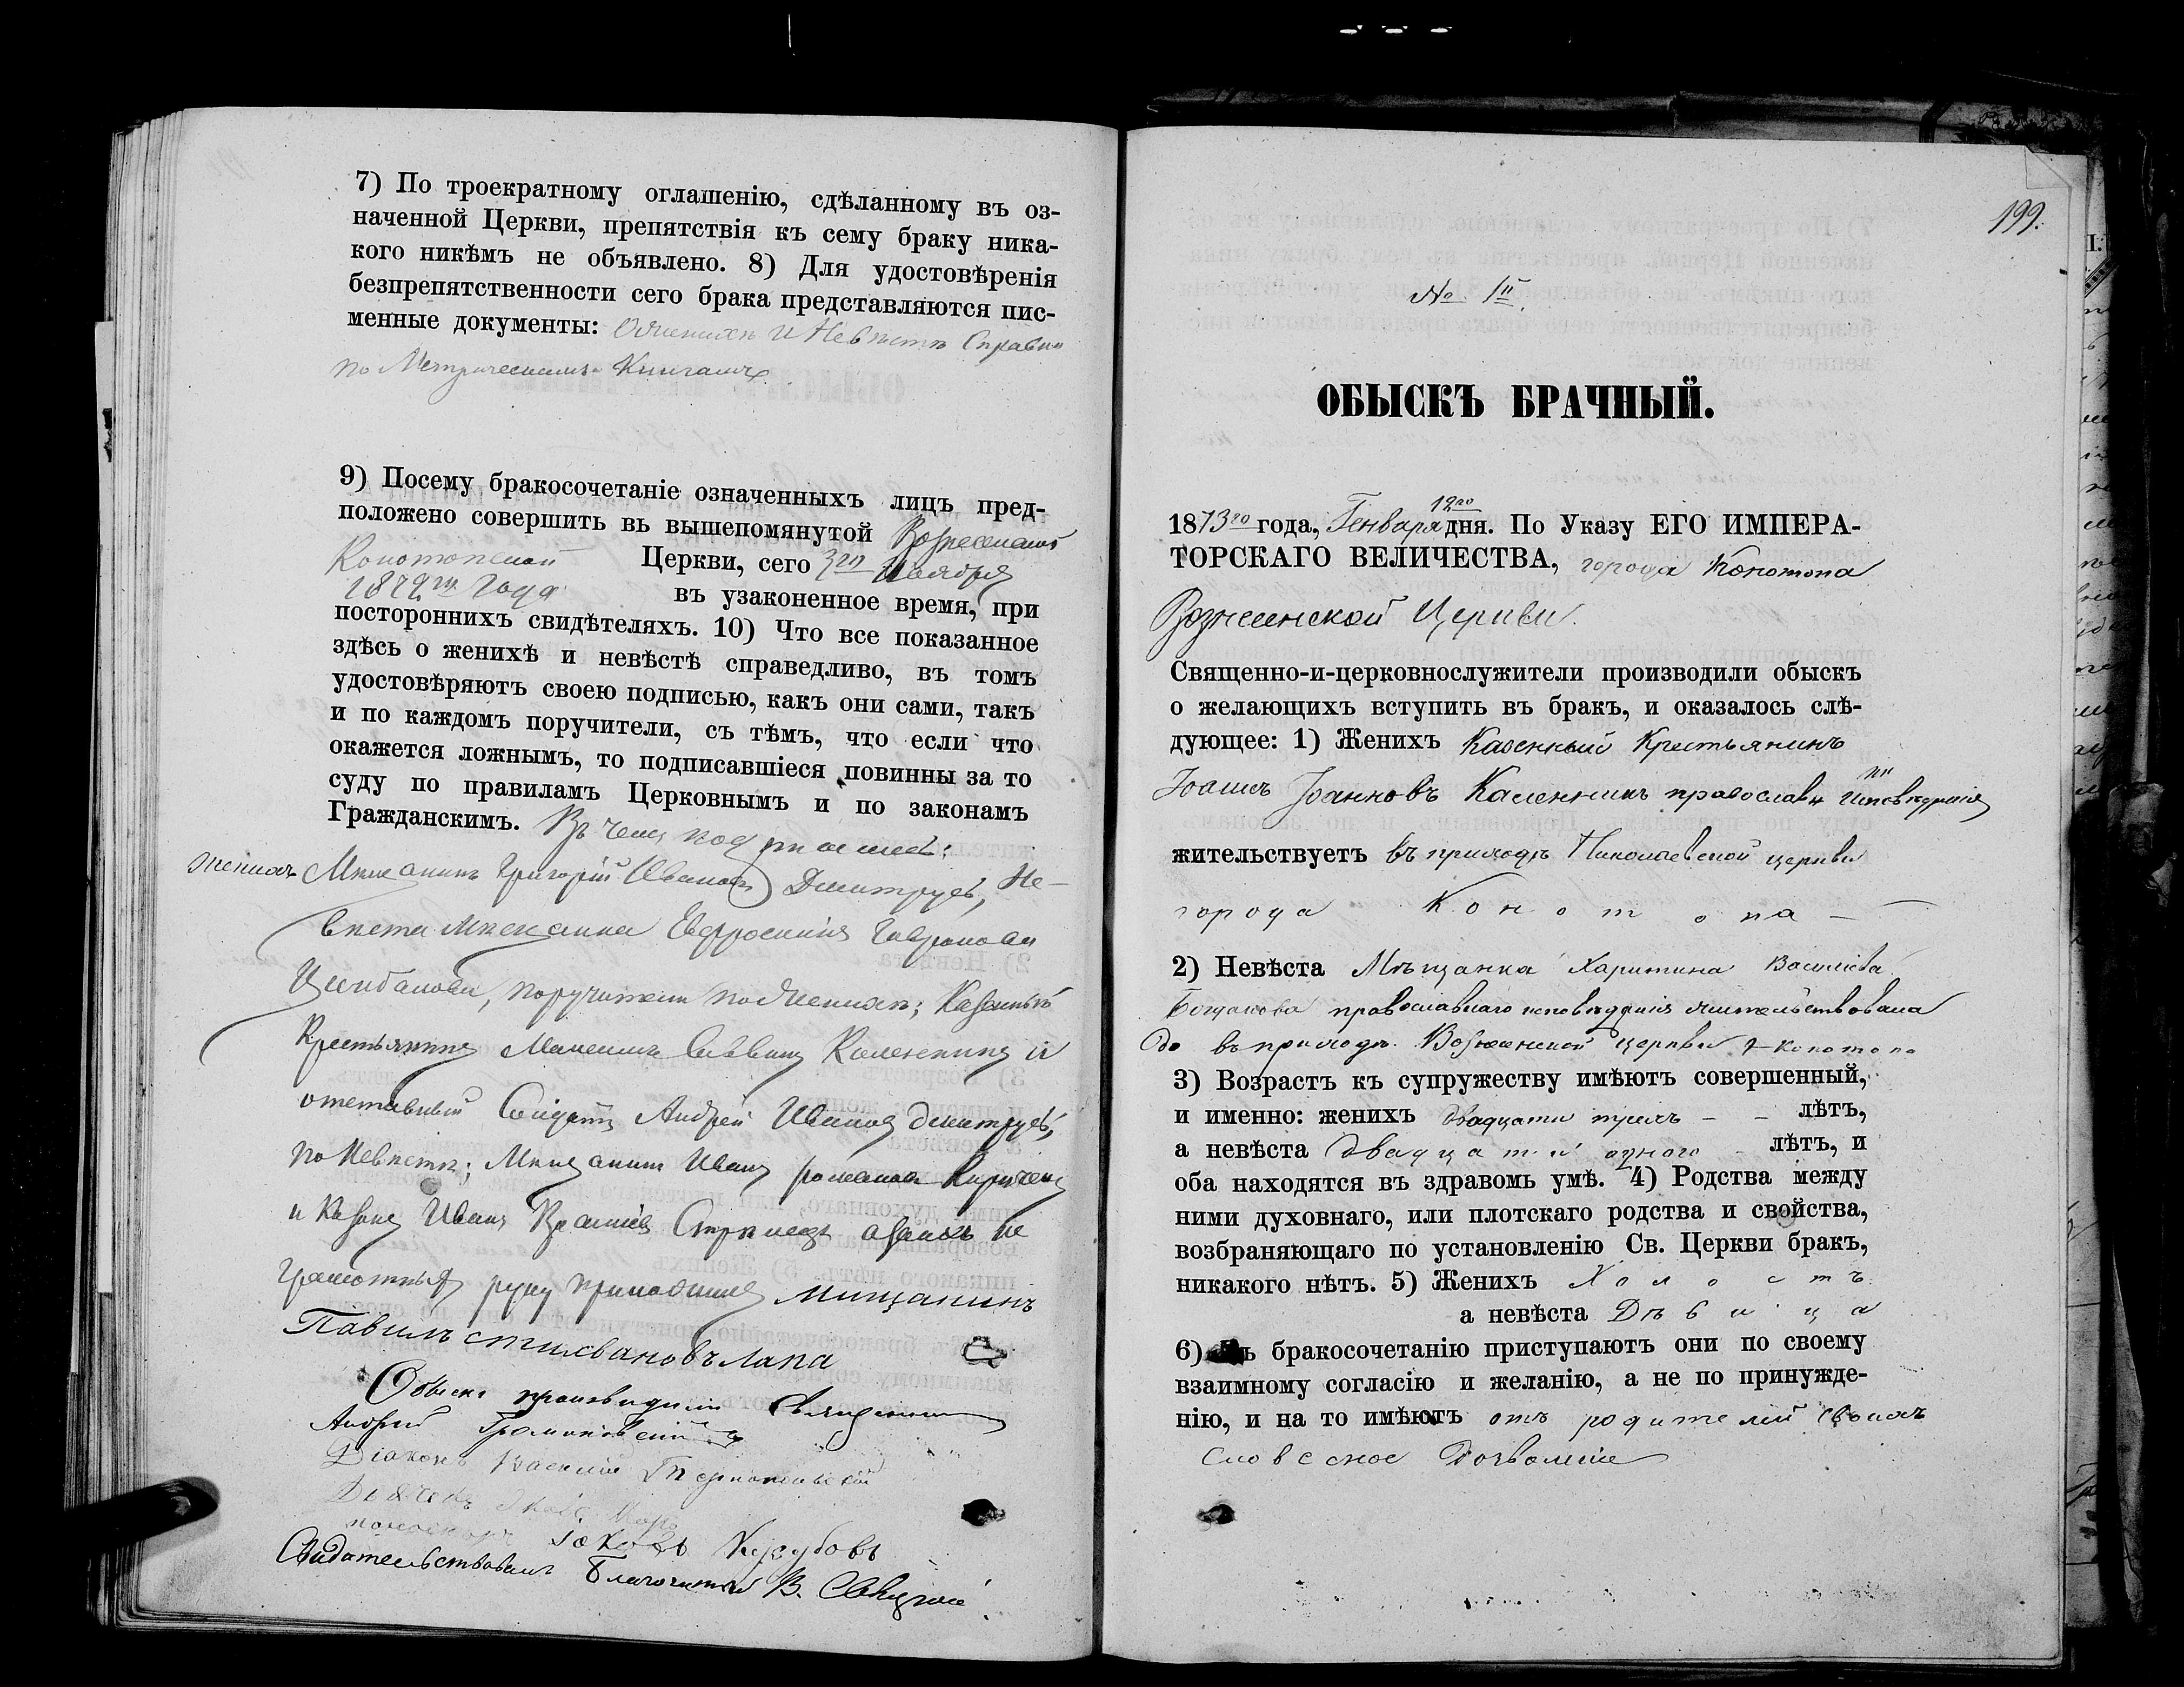 7) По троекратному оглашенію, сдѣланному въ оз-
наченной Церкви, препятствія къ сему браку ника-
кого никѣмъ не объявлено. 8) Для удостовѣренія
безпрепятственности сего брака представляются пис-
менные документы: О женихѣ и Невѣстѣ Справки
по Метрическимъ Книгамъ.
9) Посему бракосочетаніе означенныхъ лицъ пред-
положено совершить вь вышепомянутой Вознесенской
Конотопской Церкви, сего 3го Ноября
1872го года въ узаконенное время, при
постороннихъ свидѣтеляхъ. 10) Что все показанное
здѣсь о женихѣ и невѣстѣ справедливо, въ томъ
удостовѣряютъ своею подписью, какъ они сами, такъ
и по каждомъ поручители, съ тѣмъ, что если что
окажется ложнымъ, то подписавшіеся повинны за то
суду по правиламъ Церковнымъ и по законамъ
Гражданскимъ. Въ чемъ
женихъ Мѣщанинъ Григорій Ивановъ Не-
вѣста Мѣщанка Евфросинія
поручители по Женихѣ; Казенный
Крестьянинъ и
отставный Солдатъ Андрей Ивановъ
По Невѣстѣ; Мѣщанинъ Иванъ
и Казакъ Иванъ а за нихъ не
грамотныхъ руку приложилъ Мищанинъ
Павилъ
Обыскъ производили Священникъ
Андрей
Діаконъ Василій
Іаковъ
Свидѣтельствовалъ Благочинный В.
199.
№ 1й
ОБЫСКЪ БРАЧНЫЙ.
12го
1873го года, Генваря дня. По Указу ЕГО ИМПЕРА-
ТОРСКАГО ВЕЛИЧЕСТВА, города Конотопа
Вознесенской Церкви.
Священно-и-церковнослужители производили обыскъ
о желающихъ вступить въ бракъ, и оказалось слѣ-
дующее: 1) Женихъ Казенный Крестьянинъ
Іоаннъ Іоанновъ Каленникъ православн исповѣданія
жительствуетъ въ приходѣ Николаевской церкви
города Конотопа
2) Невѣста Мѣщанка Харитина Васильева
православнаго исповѣданія жительствовала
въ приходѣ Вознесенской церкви г. Конотопа
3) Возрастъ къ супружеству имѣютъ совершенный,
и именно: женихъ двадцати трехъ - - лѣтъ,
а невѣста двадцати одного - лѣтъ, и
оба находятся въ здравомь умѣ. 4) Родства между
ними духовнаго, или плотскаго родства и свойства,
возбраняющаго по установленію Св. Церкви бракъ,
никакого нѣтъ. 5) Женихъ Холостъ
а невѣста Дѣвица
6) Къ бракосочетанію приступаютъ они по своему
взаимному согласію и желанію, а не по принужде-
нію, и на то имѣютъ отъ родителей своихъ
словесное дозволеніе